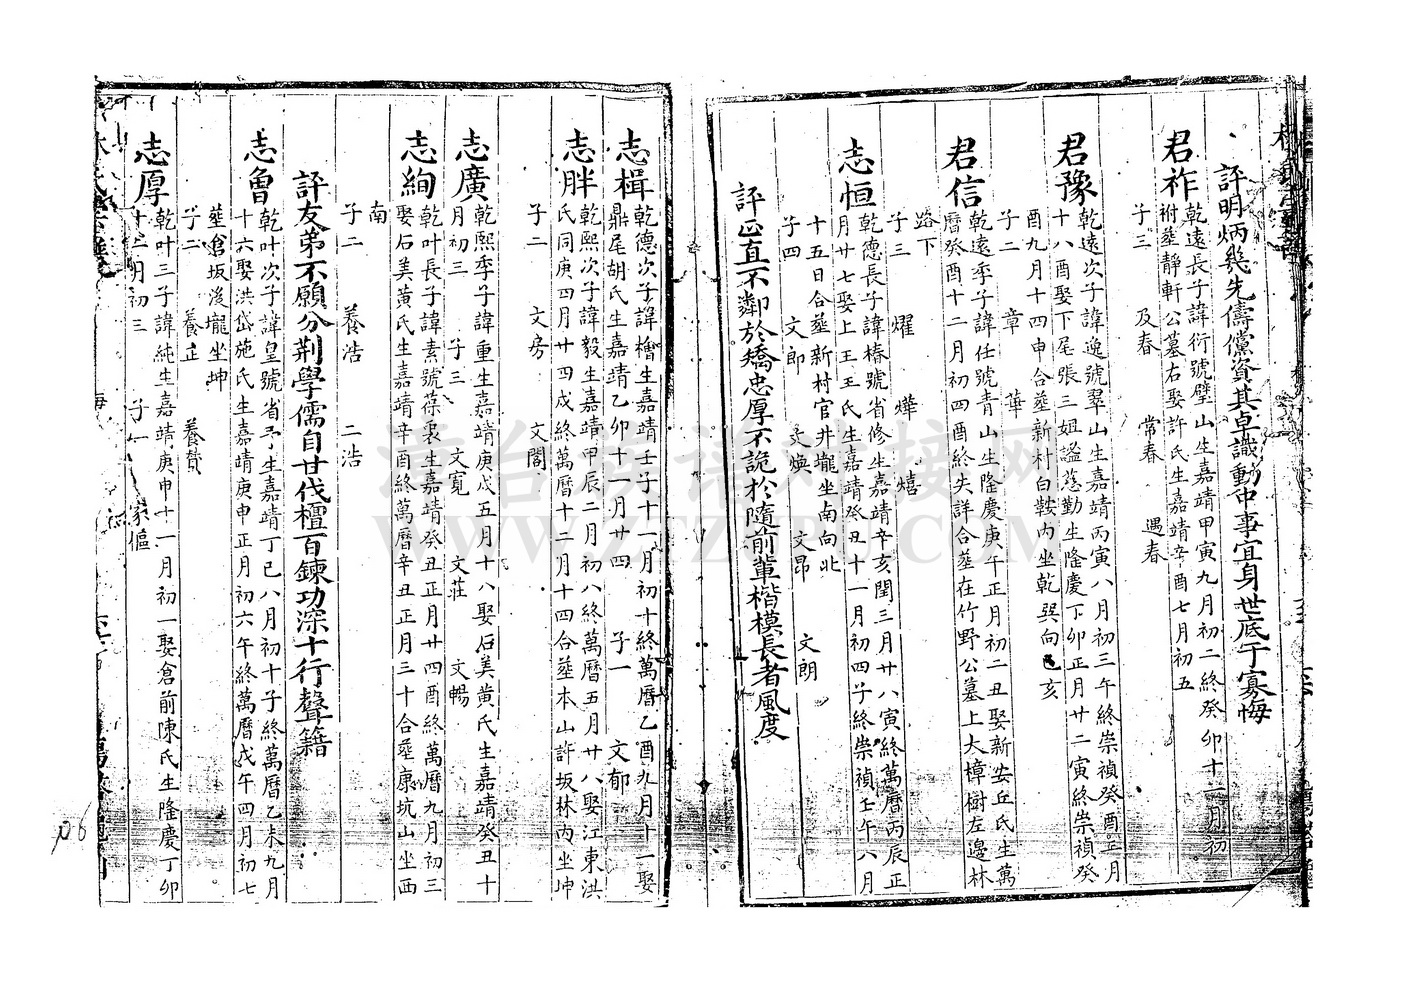 評明炳幾先儔儻資其卓識動中事宜身世底于寡悔
君祚
乾遠長子諱衍號璧山生嘉靖甲寅九月初二終癸卯十二月初
祔葬靜軒公墓右娶許氏生嘉靖辛酉七月初五
子三 及春 常春 遇春
君豫
乾遠次子諱逸號翠山生嘉靖丙寅八月初三午終崇禎癸酉正月
十八酉娶下尾張三姐謚慈勤生隆慶丁卯正月廿二寅終崇禎癸
酉九月十四申合葬新村白鞍內坐乾巽向巳亥
子二 章 華
君信
乾遠季子諱任號青山生隆慶庚午正月初二丑娶新安丘氏生萬
曆癸酉十二月初四酉終失詳合葬在竹野公墓上大樟樹左邊林
路下
子三 燿 燁 熺
志恒
乾德長子諱椿號省修生嘉靖辛亥閏三月廿八寅終萬曆丙辰正
月廿七娶上王王氏生嘉靖癸丑十一月初四子終崇禎壬午八月
十五日合葬新村官井壠坐南向北
子四 文郎 文煥 文昂 文朗
評正直不鄰於矯忠厚不詭於隨前輩楷模長者風度
志楫
乾德次子諱檜生嘉靖壬子十一月初十終萬曆乙酉九月十一娶
鼎尾胡氏生嘉靖乙卯十一月廿四 子一 文郁
志胖
乾熙次子諱毅生嘉靖甲辰二月初八終萬曆五月廿八娶江東洪
氏同庚四月廿四戌終萬曆十二月十四合葬本山許坂林丙坐坤
子二 文房 文閣
志廣
乾熙季子諱重生嘉靖庚戌五月十八娶石美黃氏生嘉靖癸丑十
月初三 子三 文寬 文莊 文暢
志絢
乾叶長子諱素號葆裒生嘉靖癸丑正月廿四酉終萬曆九月初三
娶石美黃氏生嘉靖辛酉終萬曆辛丑正月三十合葬康坑山坐西
南
子二 養浩 二浩
評友弟不願分荊學儒自甘伐檀百鍊功深十行聲籍
志魯
乾叶次子諱皇號省予生嘉靖丁巳八月初十子終萬曆乙未九月
十六娶洪岱施氏生嘉靖庚申正月初六午終萬曆戊午四月初七
葬倉坂後壠坐坤
子二 養正 養贄
志厚
乾叶三子諱純生嘉靖庚申十一月初一娶倉前陳氏生隆慶丁卯
十二月初三 子一 家樞
海台族谱对接网
WWW.ZTZUPU.COM
P6